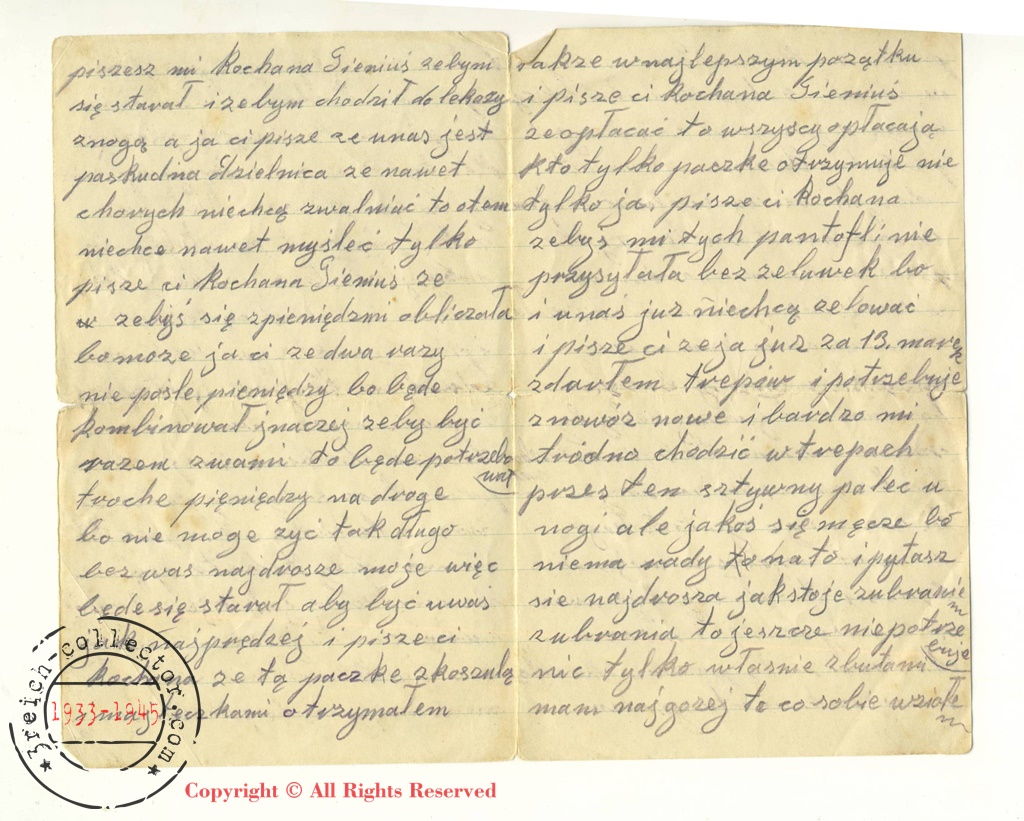 piszesz mi Kochana Gieniuś zebym
się starał i zebym chodził do lekazy
znogą a ja ci pisze ze unas jest
paskudna dzielnica ze nawet
chorych niechcą zwalniać to otem
niechce nawet myśleć tylko
pisze ci Kochana Gieniuś ze
zebyś się zpieniędzmi obliczała
bo moze ja ci ze dwa razy
nie posle pieniędzy bo będe
kombinował jnaczej zeby być
razem zwami to będe potrzebo
wał
troche pięniędzy na droge
bo nie moge zyć tak długo
bez was najdrosze moje więc
będe się starał aby być uwas
jak najprędzej i pisze ci
Kochana ze tą paczke zkoszulą
otrzymałem
takze wnajlepszym pozątku
i pisze ci Kochana Gieniuś
ze opłacać to wszyscy opłacają
kto tylko paczke otrzymuje nie
tylko ja. pisze ci Kochana
zebyś mi tych pantofli nie
przysyłała bez zeluwek bo
i unaś juz niechcą zelować
i pisze ci ze ja juz za 13. marek
zdarłem trepów i potrzebuje
znowóz nowe i bardzo mi
tródno chodzić w trepach
przes ten sztywny palec u
nogi ale jakoś się męcze bo
niema rady na to i pytasz
sie najdrosza jak stoje zubranie
m
zubrania to jeszcze niepotrze
buje
nic tylko własnie zbutami
mam najgorzej te co sobie wziołe
m
3reich-collector.com
1933-1945
Copyright © All Rights Reserved